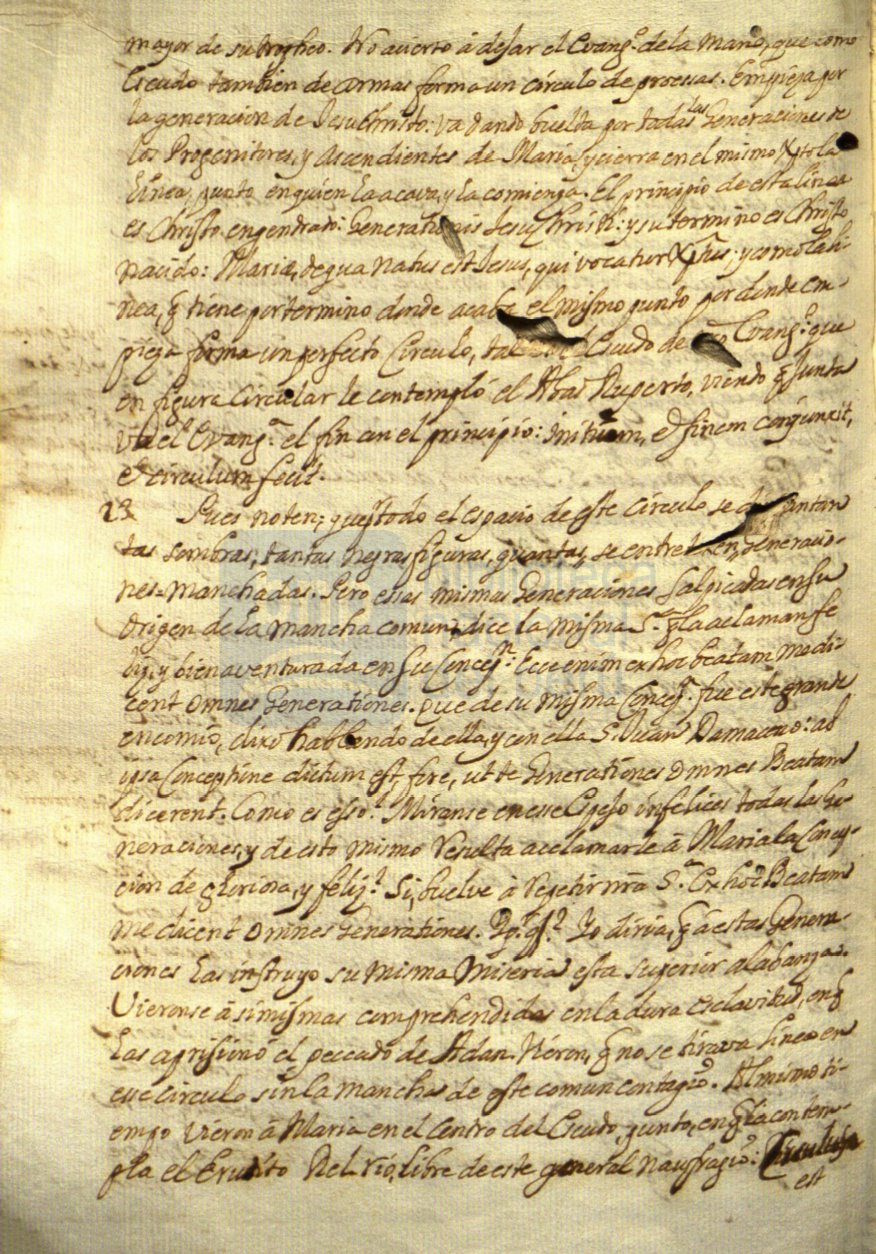 mayor de su tropheo. No acierto á dejar el Evang.º de la Mano, que como
Escudo tambien de armas forma un circulo de proezas. Empieza por
la generacion de Jesu Christo: va dando buelta por todas las Generaciones de
los Progenitores, y Ascendientes de Maria, y cierra en el mismo Xpto la
linea, punto en quien la acava, y la comienza. El principio de esta linea
es Christo engendrado: Generationis Jesu Christi: y su termino es Christo
nacido: Maria, de qua natus est Jesus, qui vocatur Xptus: y como la li-
nea, q̃ tiene por termino donde acabe el mismo punto por donde em-
pieza forma un perfecto Circulo, Escudo de Evang.º que
en figura Circular le contempló el Abad Ruperto, viendo q̃ junta
va el Evang.ª el fin con el principio: initium, et finem conjunxit,
et circulum fecit.
23 Pues noten; que todo el espacio de este circulo se tantas
tas sombras, tantas negras figuras, quantas, se entretexen, Generacio-
nes manchadas. Pero essas mismas Generaciones salpicadas en su
Origen de la mancha comun, dice la misma S.ª q̃ la aclaman fe
liz, y bienaventurada en su Concep.n: Ecce enim ex hoc beatam me di-
cent omnes Generationes. Que de su misma Concep.n fue este grande
encomio, dixo hablando de ella, y con ella S. Juan Damaceno: ab
ipsa Conceptione dictum est fore, ut te Generationes omnes Beatam
dicerent. Como es esso? Miranse en esse Espejo infelices todas las Ge-
neraciones, y de esto mismo resulta aclamarle á Maria la Concep-
cion de gloriosa, y feliz? Si, buelve à repetir nrã S.ª Ex hoc Beatam
me dicent omnes Generationes. Yo diria, q̃ á estas Genera-
ciones las instruyo su misma Miseria esta superior alabanza.
Vieronse á si mismas comprehendidas en la dura esclavitud, en q̃
las aprisionó el peccado de Adan. Vieron, q̃ no se tirava linea en
esse circulo sin la mancha de este comun contagio. Al mismo ti-
empo vieron á Maria en el Centro del Escudo, punto, en q̃ la contem-
pla el Erudito Del rio, libre de este general naufragio:
est